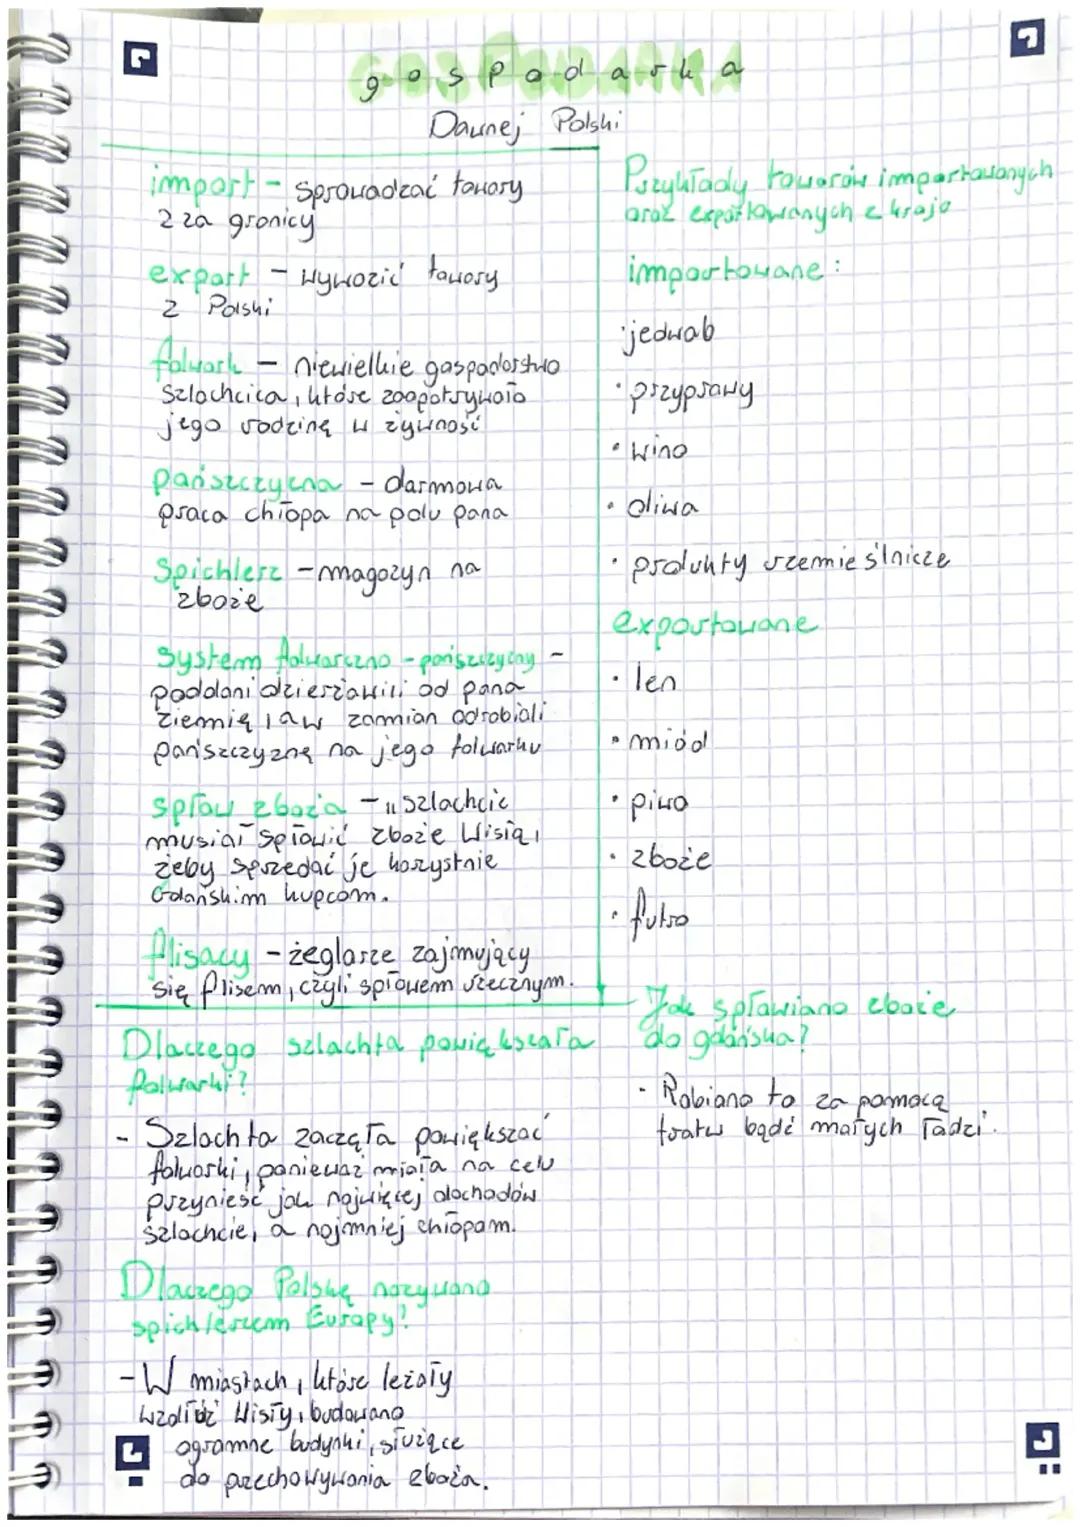 GOSPODARKA
gospodarka
Dawnej Polski
import - sprowadzać towary
z za granicy
export - wywozić towary
z Polski
folwark - niewielkie gospodarstwo
szlachcica, które zaopatrywało
jego rodzinę w żywność
pańszczyzna - darmowa
praca chłopa na polu pana
Spichlerz - magazyn na
zboże
System folwarczno - pańszczyzny -
poddani dzierżawili od pana
ziemię, a w zamian odrabiali
pańszczyznę na jego folwarku
spław zboża - szlachcic
musiał spławić zboże Wisłą,
żeby sprzedać je korzystnie
Gdańskim kupcom.
flisacy - żeglarze zajmujący
się flisem, czyli spławem rzecznym.
Dlaczego szlachta powiększała
folwarki?
- Szlachta zaczęła powiększać
folwarki, ponieważ miała na celu
przynieść jak najwięcej dochodów
szlachcie, a najmniej chłopom.
Dlaczego Polskę nazywano
spichlerzem Europy?
- W miastach, które leżały
wzdłuż Wisły, budowano
ogromne budynki, służące
do przechowywania zboża.
Przykłady towarów importowanych
oraz exportowanych z kraju
importowane:
· jedwab
· przyprawy
· wino
· oliwa
· produkty rzemieślnicze
exportowane
· len
· miód
· piwo
· zboże
· futro
Jak spławiano zboże
do gdańska?
- Robiono to za pomocą
tratw bądź małych ładzi.